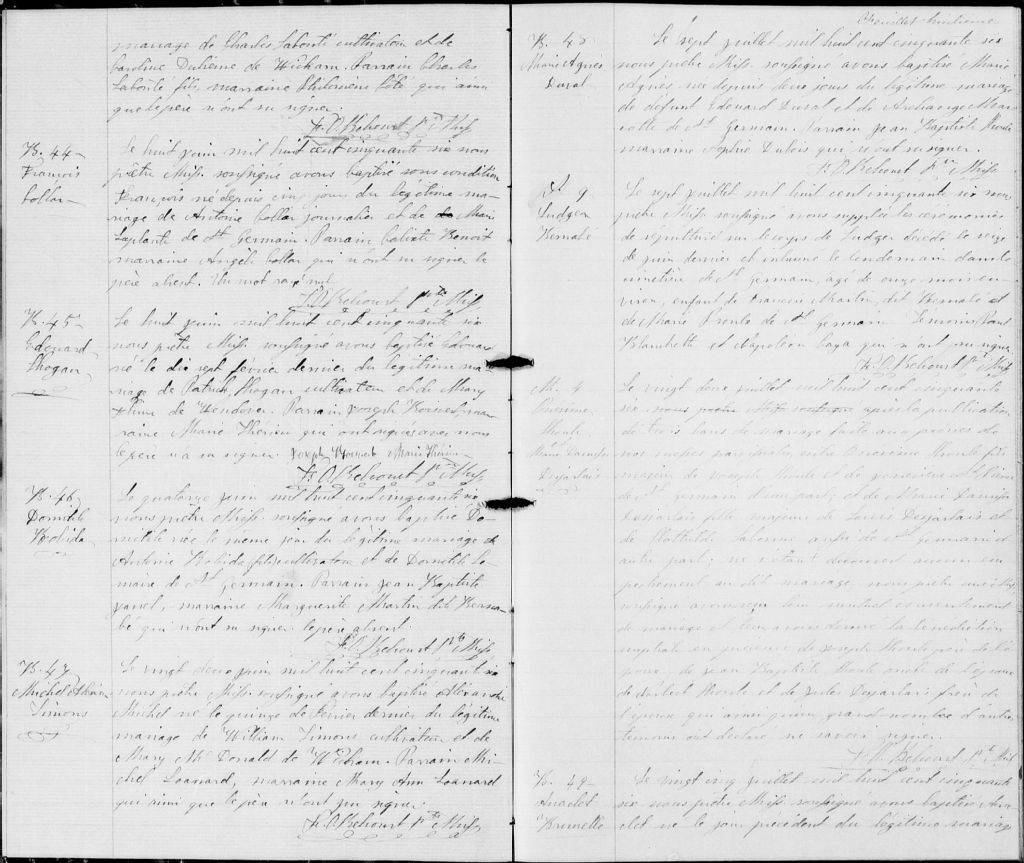 mariage de Charles Labonté cultivateur et de
Caroline Duhême de Wickham. Parrain Charles
Labonté fils, marraine Philomène Côté qui ainsi
que le père n'ont su signer.
F. O. Belcourt Ptre Miss
B. 44
François
Collar
Le huit juin mil huit cent cinquante six nous
prêtre Miss. soussigné avons baptisé sous condition
François né depuis cinq jours du légitime ma-
riage de Antoine Collar journalier et de Marie
Laplante de St Germain. Parrain Calixte Benoit
marraine Angele Collar qui n'ont su signer le
père absent. Un mot rayé nul
F. O. Belcourt Ptre Miss
B. 45
Edouard
Hogan
Le huit juin mil huit cent cinquante six
nous prêtre Miss soussigné avons baptisé Edouard
né le dix sept février dernier du légitime ma-
riage de Patrick Hogan cultivateur et de Mary
de Wendover. Parrain Joseph mar-
raine Marie Thérien qui ont signés avec nous
le père n'a su signer. Joseph Marie Thérien
F. O. Belcourt Ptre Miss
B. 46
Domitile
Labonté six
nous prêtre Miss. soussigné avons baptisé Do-
mitile née le même jour du légitime mariage de
Antoine fils cultivateur et de Domitile Le-
maire de St Germain. Parrain Jean Baptiste
Janel, marraine Marguerite Martin dit Berna-
bé qui n'ont su signer le père absent.
F. O. Belcourt Ptre Miss
B. 47
Michel
Simons
Le vingt deux juin mil huit cent cinquante six
nous prêtre Miss soussigné avons baptisé Alexandre
Michel né le quinze de février dernier du légitime
mariage de William Simons cultivateur et de
Mary McDonald de Wickham. Parrain Mi-
chel Leonard, marraine Mary Ann Leonard
qui ainsi que le père n'ont pu signer.
F. O. Belcourt Ptre Miss
feuillet huitième
B. 48
Marie Agnes
Duval
Le sept juillet mil huit cent cinquante six
nous prêtre Miss. soussigné avons baptisé Marie
Agnès née depuis deux jours du légitime mariage
de défunt Edouard Duval et de Archange
de St Germain. Parrain Jean Baptiste
marraine Sophie Dubois qui n'ont su signer.
F. O. Belcourt Ptre Miss
S. 9
Ludger
Bernabé
Le sept juillet mil huit cent cinquante six nous
prêtre Miss soussigné avons suppléé les cérémonies
de sépulture sur le corps de Ludger décédé le seize
de juin dernier et inhumé le lendemain dans le
cimetière de St Germain, agé de onze mois en-
viron, enfant de François Martin, dit Bernabé et
de Marie Proulx de St Germain. Témoins Paul
Blanchette et Napoléon qui n'ont su signer
F. O. Belcourt Ptre Miss
M. 4
Onésime
Desjarlais
Le vingt deux juillet mil huit cent cinquante
six nous prêtre Miss soussigné après la publication
de trois bans de mariage faite aux prônes de
nos messes paroissiales, entre Onésime fils
majeur de Joseph
de St Germain d'une part; et de Marie
Desjarlais fille de Louis Desjarlais et
de Mathilde aussi de St Germain d'
autre part; ne s'étant découvert aucun em-
pêchement au dit mariage nous prêtre Miss
soussigné avons reçu leur mutuel consentement
de mariage et leur avons donné la bénédiction
nuptiale en présence de Joseph père de l'é-
poux, de Jean Baptiste oncle de l'époux
de et de Desjarlais frère de
l'épouse qui ainsi qu'un grand nombre d'autres
témoins ont déclaré ne savoir signer.
F. O. Belcourt Ptre Miss
B. 49
Anaclet
Brunelle
Le vingt cinq juillet mil huit cent cinquante
six nous prêtre Miss soussigné avons baptisé Ana-
clet né le jour précédent du légitime mariage